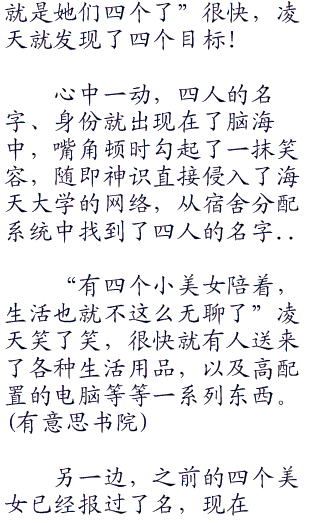 就是她们四个了”很快，凌
天就发现了四个目标！
心中一动，四人的名
字、身份就出现在了脑海
中，嘴角顿时勾起了一抹笑
容，随即神识直接侵入了海
天大学的网络，从宿舍分配
系统中找到了四人的名字..
“有四个小美女陪着，
生活也就不这么无聊了”凌
天笑了笑，很快就有人送来
了各种生活用品，以及高配
置的电脑等等一系列东西。
(有意思书院)
另一边，之前的四个美
女已经报过了名，现在